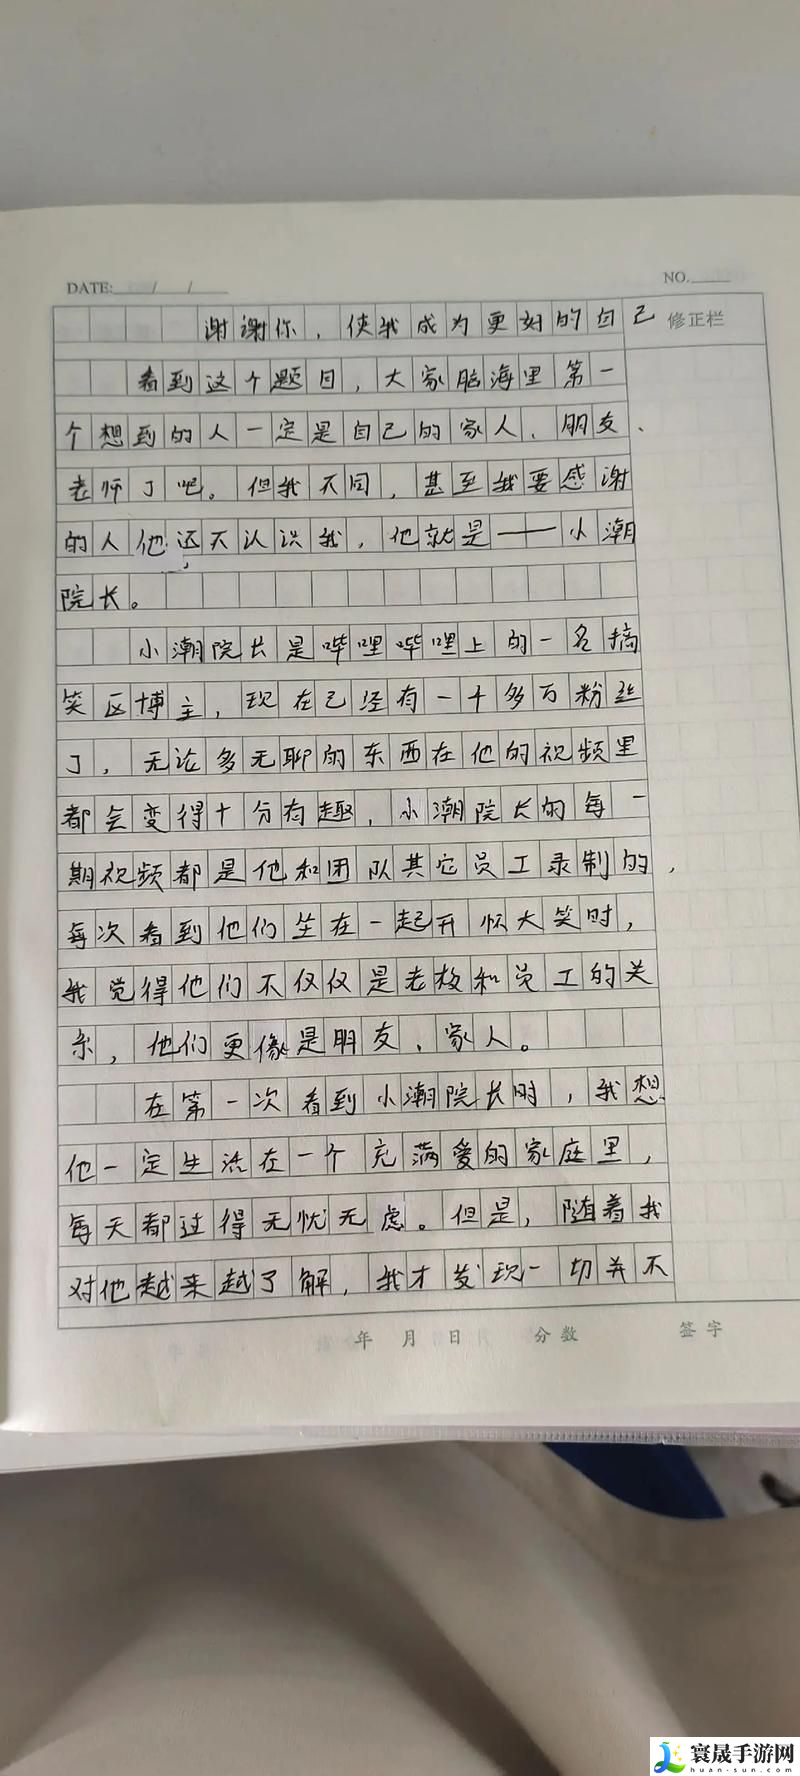 DATE: / /
NO.
谢谢你，使我成为更好的自己
修正栏
看到这个题目，大家脑海里第一
个想到的人一定是自己的家人、朋友、
老师了吧。但我不同，甚至我要感谢
的人他还不认识我，他就是——小潮
院长。
小潮院长是哔哩哔哩上的一名搞
笑区博主，现在已经有一千多万粉丝
了，无论多无聊的东西在他的视频里
都会变得十分有趣，小潮院长的每一
期视频都是他和团队其它员工录制的，
每次看到他们坐在一起开怀大笑时，
我觉得他们不仅仅是老板和员工的关
系，他们更像是朋友、家人。
在第一次看到小潮院长时，我想
他一定生活在一个充满爱的家庭里，
每天都过得无忧无虑。但是，随着我
对他越来越了解，我才发现一切并不
年 月 日 分数 签字
寰晟手游网
huan-sun.com